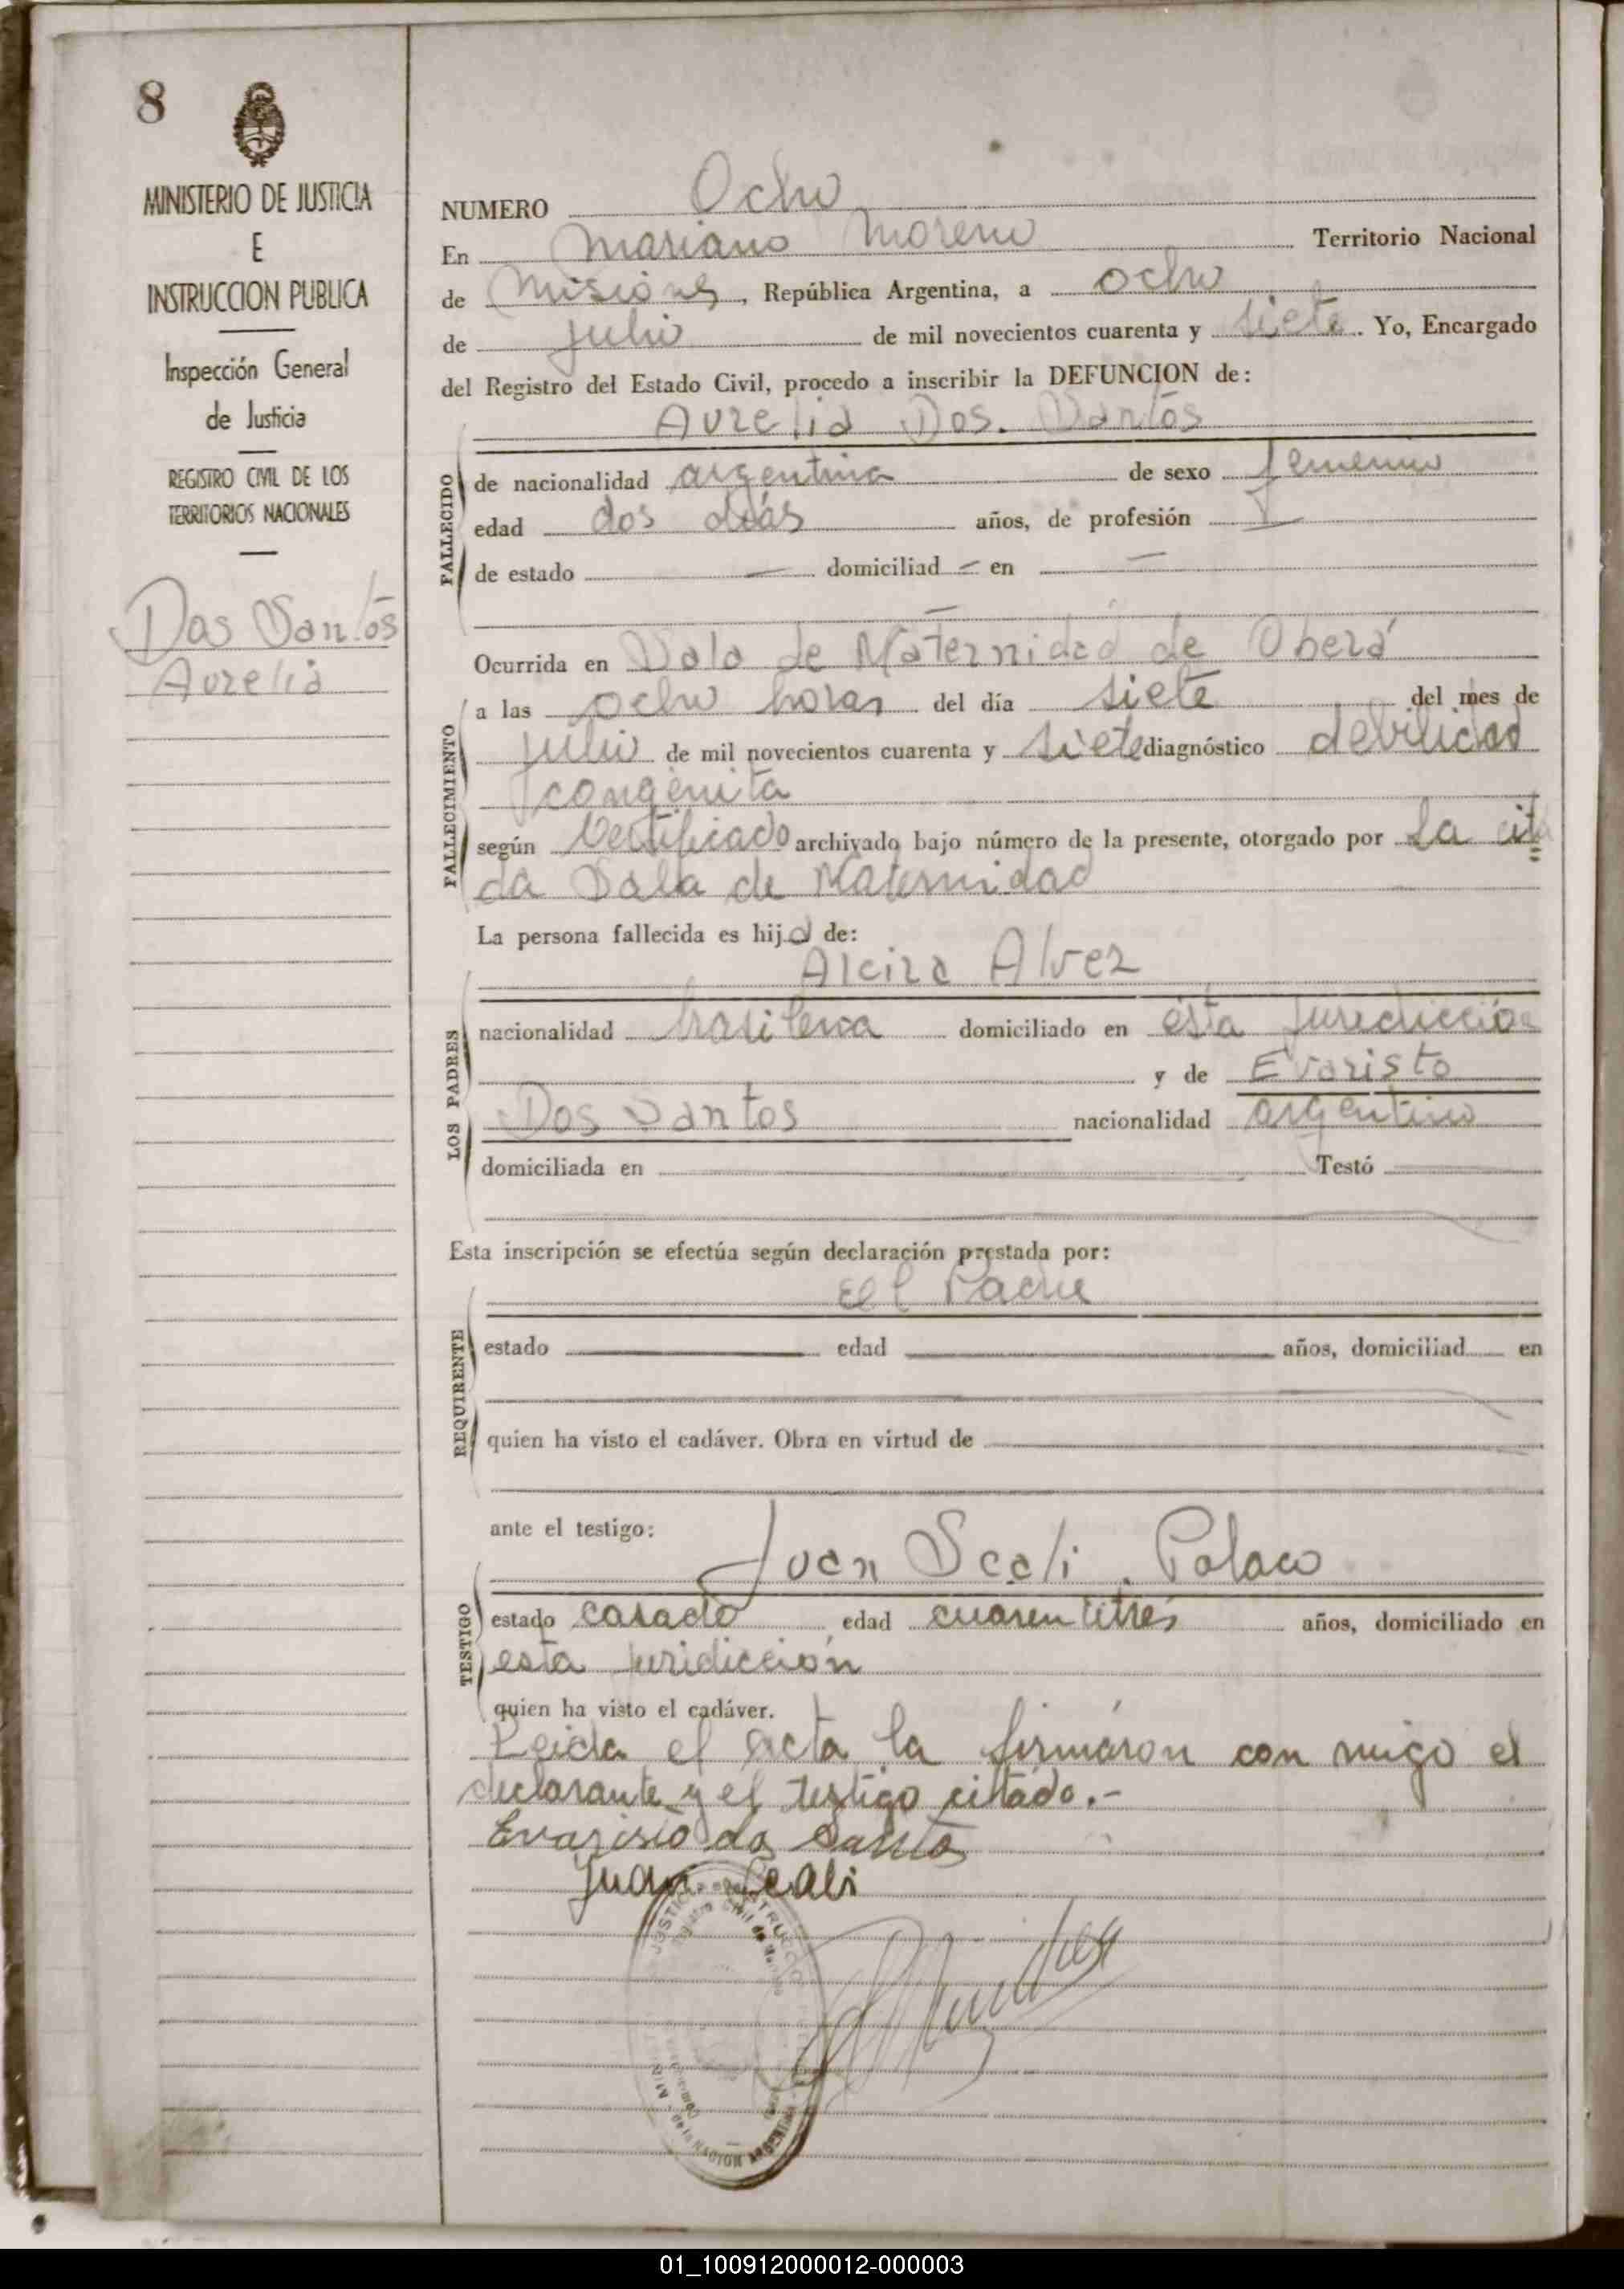 8
MINISTERIO DE JUSTICIA
E
INSTRUCCION PUBLICA
Inspección General
de Justicia
REGISTRO CIVIL DE LOS
TERRITORIOS NACIONALES
Dos Santos
Aurelia
NUMERO Ocho
En Mariano Moreno Territorio Nacional
de Misiones, República Argentina, a ocho
de julio de mil novecientos cuarenta y siete. Yo, Encargado
del Registro del Estado Civil, procedo a inscribir la DEFUNCION de:
Aurelia Dos. Santos
FALLECIDO
de nacionalidad argentina de sexo femenino
edad dos días años, de profesión —
de estado — domiciliad — en —
—
Ocurrida en Sala de Maternidad de Oberá
FALLECIMIENTO
a las ocho horas del día siete del mes de
julio de mil novecientos cuarenta y siete diagnóstico debilidad
congénita
según Certificado archivado bajo número de la presente, otorgado por la cita
da Sala de Maternidad
La persona fallecida es hija de:
Alcira Alvez
LOS PADRES
nacionalidad brasilena domiciliado en ésta juredicción
y de Evaristo
Dos Santos nacionalidad argentino
domiciliada en Testó
Esta inscripción se efectúa según declaración prestada por:
El Padre
REQUIRENTE
estado edad años, domiciliad en
quien ha visto el cadáver. Obra en virtud de
ante el testigo:
Juan Scali. Polaco
TESTIGO
estado casado edad cuarentitrés años, domiciliado en
esta juridicción
quien ha visto el cadáver.
Leida el acta la firmáron con migo el
declarante y el testigo citado.-
Evaristo dos Santos
Juan Scali
01_100912000012-000003